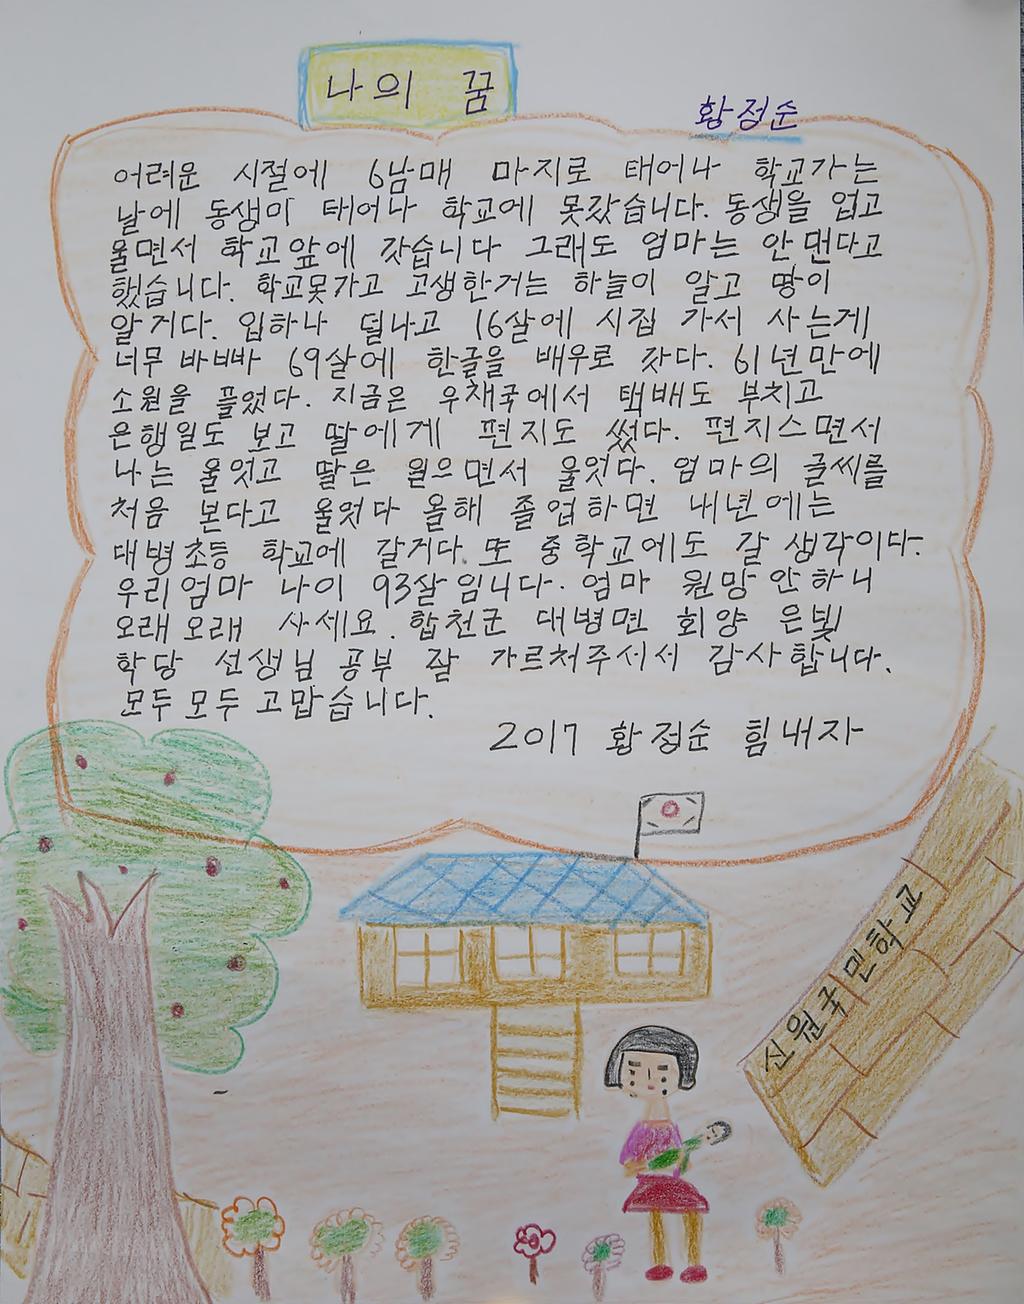 나의 꿈
황정순
어려운 시절에 6남매 마지로 태어나 학교가는
날에 동생이 태어나 학교에 못갔습니다. 동생을 업고
울면서 학교앞에 갔습니다 그래도 엄마는 안 댄다고
했습니다. 학교못가고 고생한거는 하늘이 알고 땅이
알거다. 입하나 덜나고 16살에 시집 가서 사는게
너무 바빠 69살에 한글을 배우로 갓다. 61년만에
소원을 플었다. 지금은 우채국에서 택배도 부치고
은행일도 보고 딸에게 편지도 썼다. 편지스면서
나는 울었고 딸은 읽으면서 울었다. 엄마의 글씨를
처음 본다고 울었다 올해 졸업하면 내년에는
대병초등 학교에 갈거다. 또 중학교에도 갈 생각이다.
우리엄마 나이 93살임니다. 엄마 원망안하니
오래오래 사세요. 합천군 대병면 회양 은빛
학당 선생님 공부 잘 가르처주서서 감사합니다.
모두모두 고맙습니다.
2017 황정순 힘내자
신원국민학교